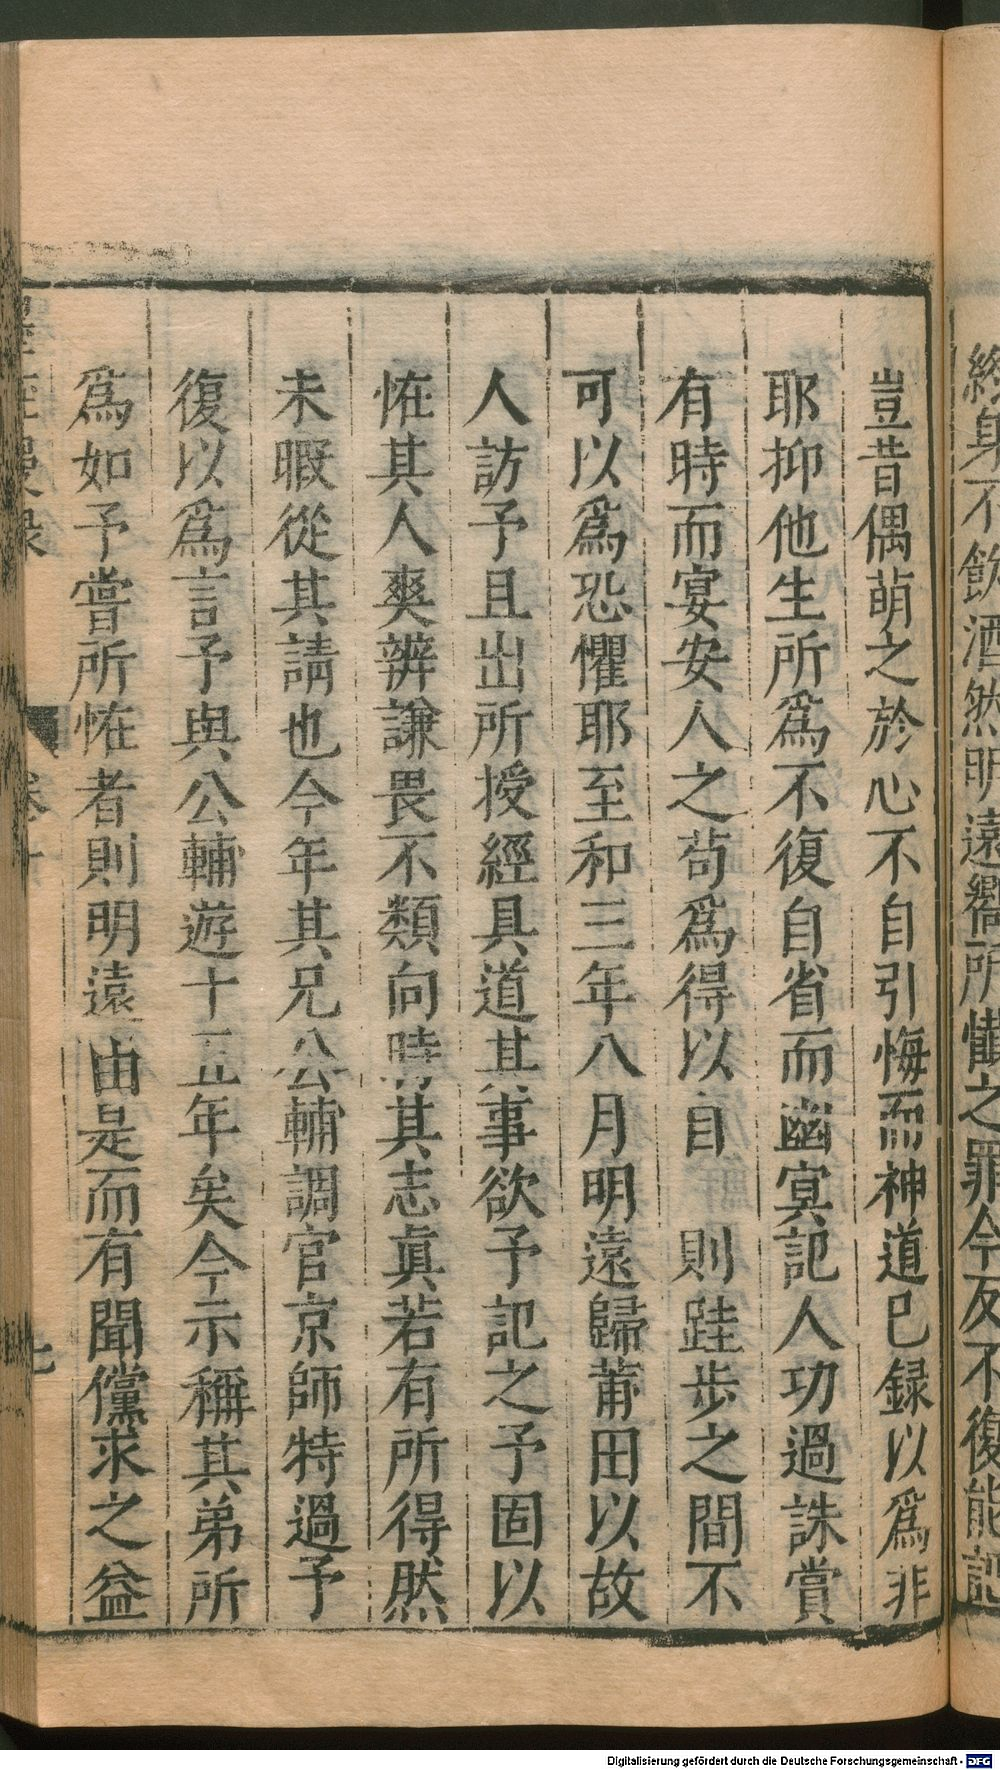 終身不飲酒然明遠嚮所懺之罪今反不復能記
豈昔偶萌之於心不自引悔而神道已録以爲非
耶抑他生所爲不復自省而幽冥記人功過誅賞
有時而宴安人之茍爲得以自 則跬步之間不
可以爲恐懼耶至和三年八月明遠歸莆田以故
人訪予且出所授經具道其事欲予記之予固以
恠其人爽辨謙畏不類向時其志眞若有所得然
未暇從其請也今年其兄公輔調官京師特過予
復以爲言予與公輔遊十五年矣今示稱其弟所
爲如予嘗所恠者則明遠由是而有聞儻求之益
墨莊漫录 卷十 七
Digitalisierung gefördert durch die Deutsche Forschungsgemeinschaft - DFG